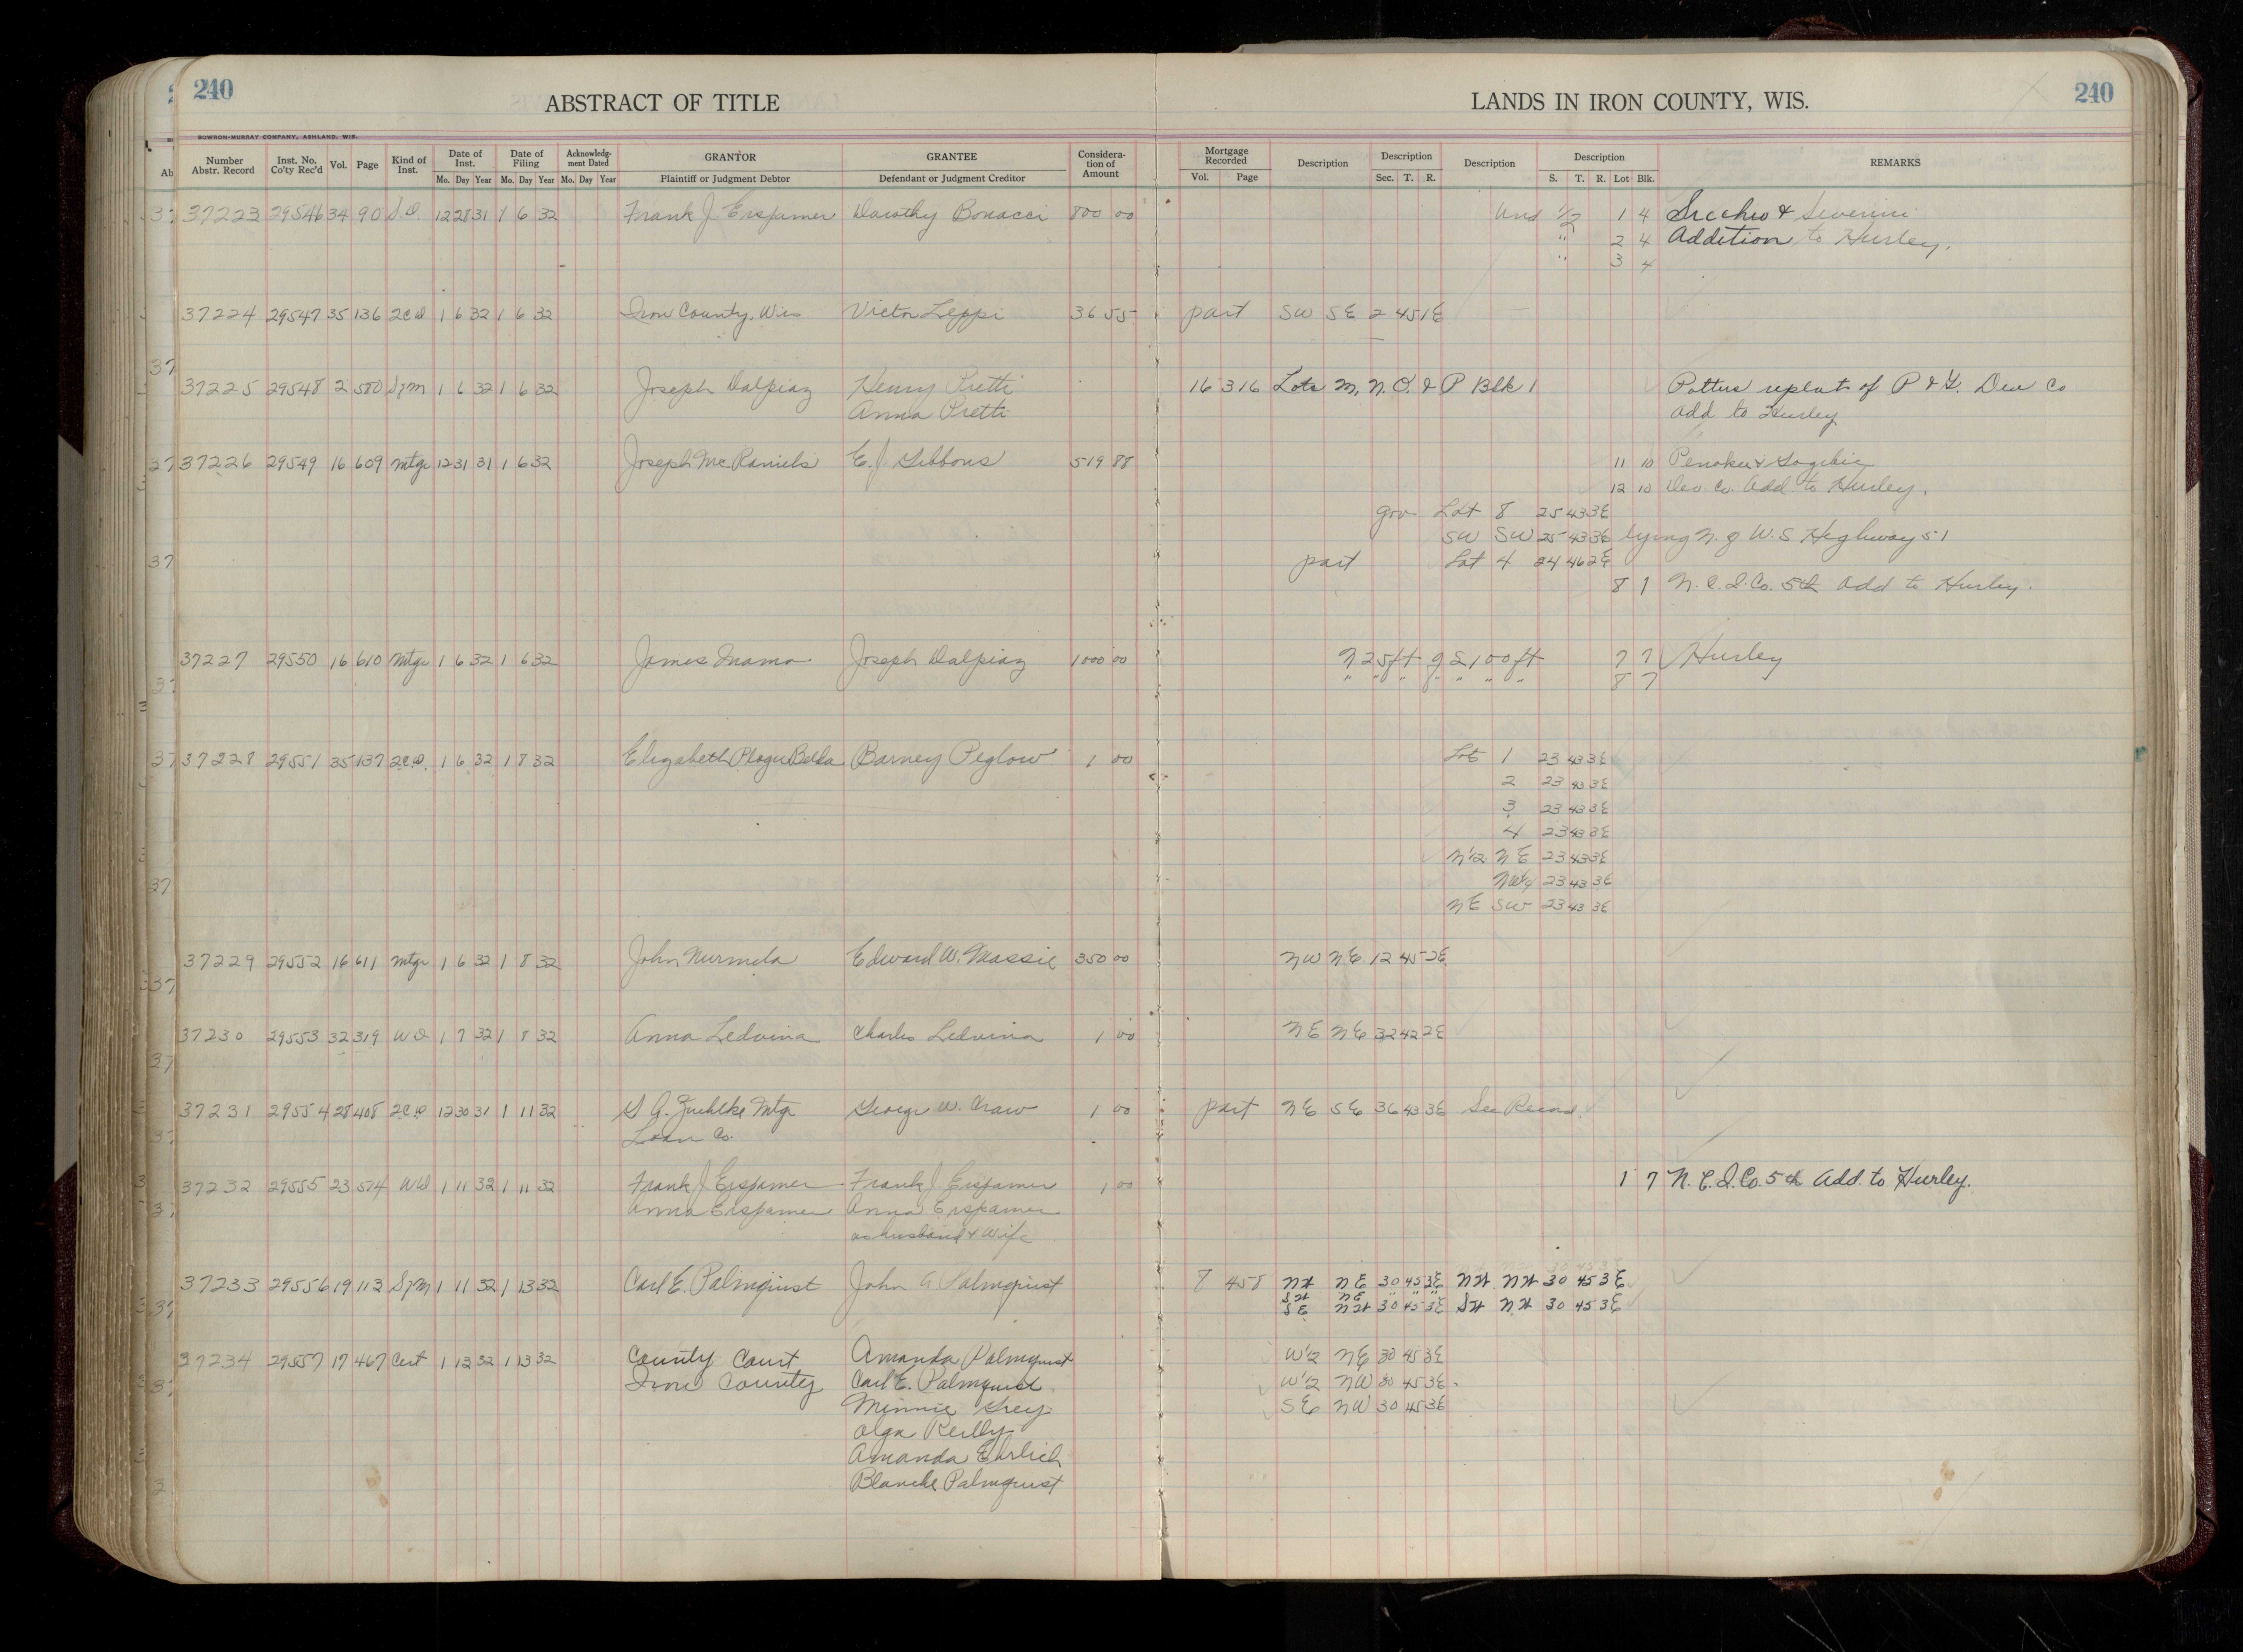 240
ABSTRACT OF TITLE
LANDS IN IRON COUNTY, WIS.
240
BOWRON-MURRAY COMPANY, ASHLAND, WIS.
Number Abstr. Record Inst. No. Co'ty Rec'd Vol. Page Kind of Inst. Date of Inst. Mo. Day Year Date of Filing Mo. Day Year Acknowledg-ment Dated Mo. Day Year GRANTOR Plaintiff or Judgment Debtor GRANTEE Defendant or Judgment Creditor Considera-tion of Amount Mortgage Recorded Vol. Page Description Description Sec. T. R. Description Description S. T. R. Lot Blk. REMARKS
37223 29546 34 90 12 28 31 1 6 32 Frank J. Erspamer Dorothy Bonacci 800 00 Und 1/2 1 4 &
" 2 4 Addition to Hurley.
" 3 4
37224 29547 35 136 2CD 1 6 32 1 6 32 Iron County, Wis Victor Leppi 36 55 part SW SE 2 45 1E
37225 29548 2 580 1 6 32 1 6 32 Joseph Dalpiaz Henry Pretti 16 316 Lots M, N, O, & P Blk 1 replat of P & G. Dev Co
Anna Pretti Add to Hurley
37226 29549 16 609 Mtge 12 31 31 1 6 32 Joseph McDaniels E. J. Gibbons 519 88 11 10 Penokee & Gogebic
12 10 Dev. Co. Add. to Hurley.
gov Lot 8 25 43 3E
SW SW 25 43 3E lying N. of U.S Highway 51
part Lot 4 24 46 2E
8 1 N. C. I. Co. 5th Add to Hurley.
37227 29550 16 610 Mtge 1 6 32 1 6 32 Joseph Dalpiaz 1000 00 N 25 ft of S 100 ft 7 7 Hurley
" " " " " " " 8 7
37228 29551 35 137 2CD. 1 6 32 1 8 32 Elizabeth Barney Peglow 1 00 Lot 1 23 43 3E
2 23 43 3E
3 23 43 3E
4 23 43 3E
N1/2 NE 23 43 3E
NW1/4 23 43 3E
NE SW 23 43 3E
37229 29552 16 611 Mtge 1 6 32 1 8 32 John Nurmela Edward W. Massie 350 00 NW NE 12 45 2E
37230 29553 32 319 WD 1 7 32 1 8 32 Anna Ledvina Charles Ledvina 1 00 NE NE 32 42 2E
37231 29554 28 408 2CD 12 30 31 1 11 32 G A. Zuehlke Mtge George W. Craw 1 00 part NE SE 36 43 3E See Record
Loan Co.
37232 29555 23 574 WD 1 11 32 1 11 32 Frank J. Erspamer Frank J Erspamer 1 00 1 7 N. C. I. Co. 5th Add. to Hurley.
Anna Erspamer Anna Erspamer
as husband & Wife
37233 29556 19 113 1 11 32 1 13 32 Carl E. Palmquist John A Palmquist 8 458 NW NE 30 45 3E NW NW 30 45 3E
SW NE " " "
SE NW 30 45 3E SW NW 30 45 3E
37234 29557 17 467 Cert 1 13 32 1 13 32 County Court Amanda Palmquist W1/2 NE 30 45 3E
Iron County Carl E. Palmquist W1/2 NW 30 45 3E
Minnie Grey SE NW 30 45 3E
Olga Reilly
Amanda Ehrlich
Blanche Palmquist